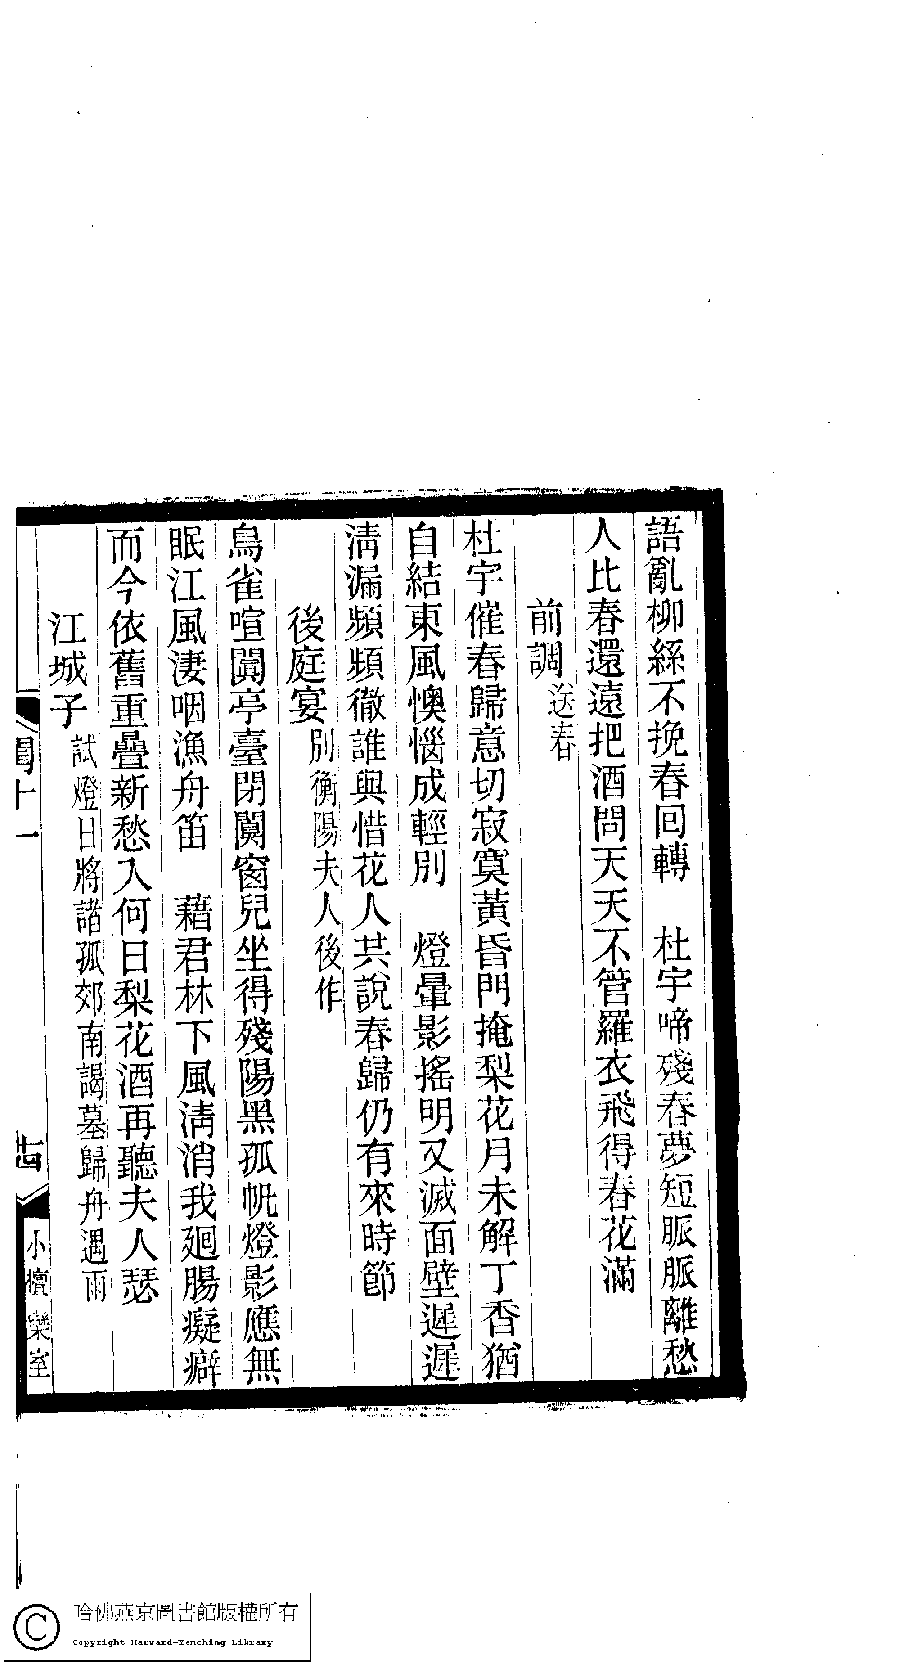 語亂柳絲不挽春回轉　杜宇啼殘春夢短脈脈離愁
人比春還遠把酒問天天不管羅衣飛得春花滿
前調 送春
杜宇催春歸意切寂寞黃昏門掩梨花月未解丁香猶
自結東風懊惱成輕別　燈暈影搖明又滅面壁遲遲
清漏頻頻徹誰與惜花人共說春歸仍有來時節
後庭宴 別衡陽夫人後作
鳥雀喧闐亭臺閉闃窗兒坐得殘陽黑孤帆燈影應無
眠江風淒咽漁舟笛　藉君林下風清消我廻腸癡癖
而今依舊重疊新愁入何日梨花酒再聽夫人瑟
江城子 試燈日將諸孤郊南謁墓歸舟遇雨
十一
十四
小檀欒室
哈佛燕京圖書館版權所有
Copyright Harvard-Yenching Library